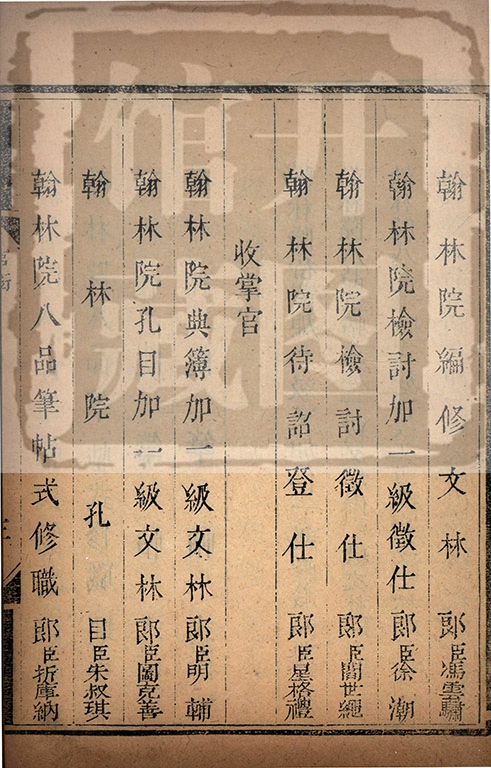 翰林院編修文林郎臣馮雲驌
翰林院檢討加一級徵仕郎臣徐潮
翰林院檢討徵仕郎臣閻世繩
翰林院待詔登仕郎臣星格禮
收掌官
翰林院典簿加一級文林郎臣明輔
翰林院孔目加一級文林郎臣圖克善
翰林院孔目臣朱叔琪
翰林院八品筆帖式修職郎臣折庫納